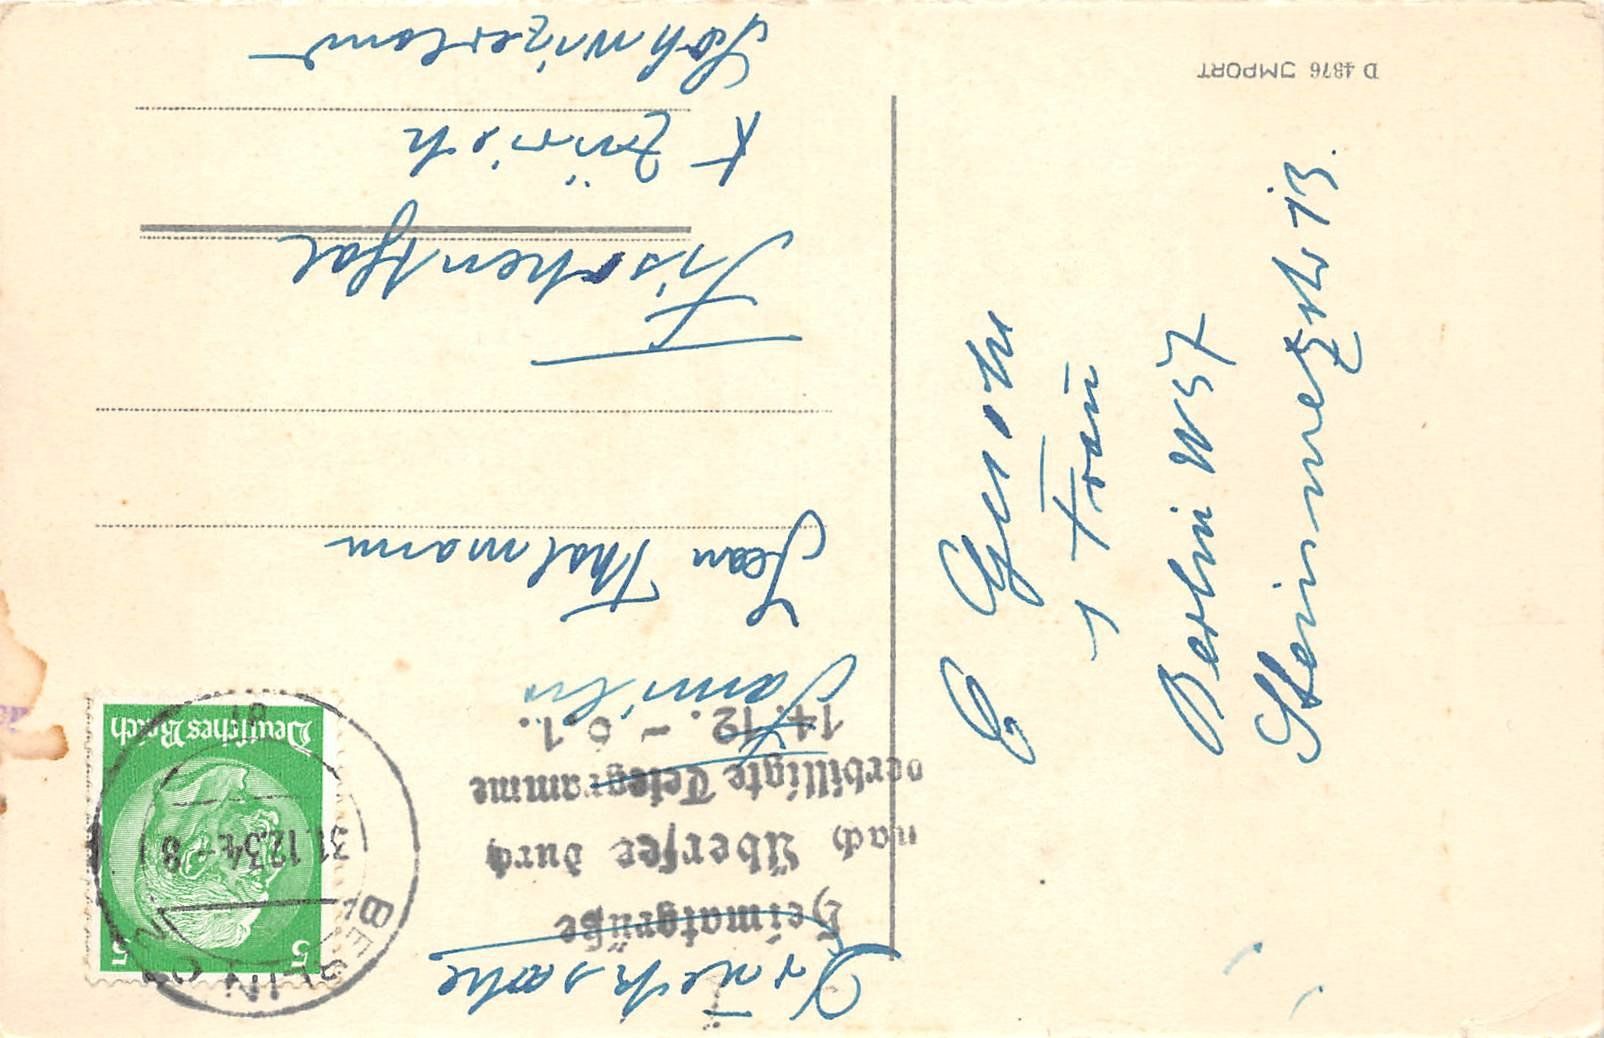 D 4876 IMPORT
E Gesche
& Frau
Berlin W57
Steinmetzstr 13.
Drucksache
Heimatgrüße
nach Übersee durch
verbilligte Telegramme
14.12. - 6.1.
Familie
Jean Thalmann
Fischenthal
Kt Zürich
Schwizerland
5 5
Deutsches Reich
BERLIN
31.12.34.-8